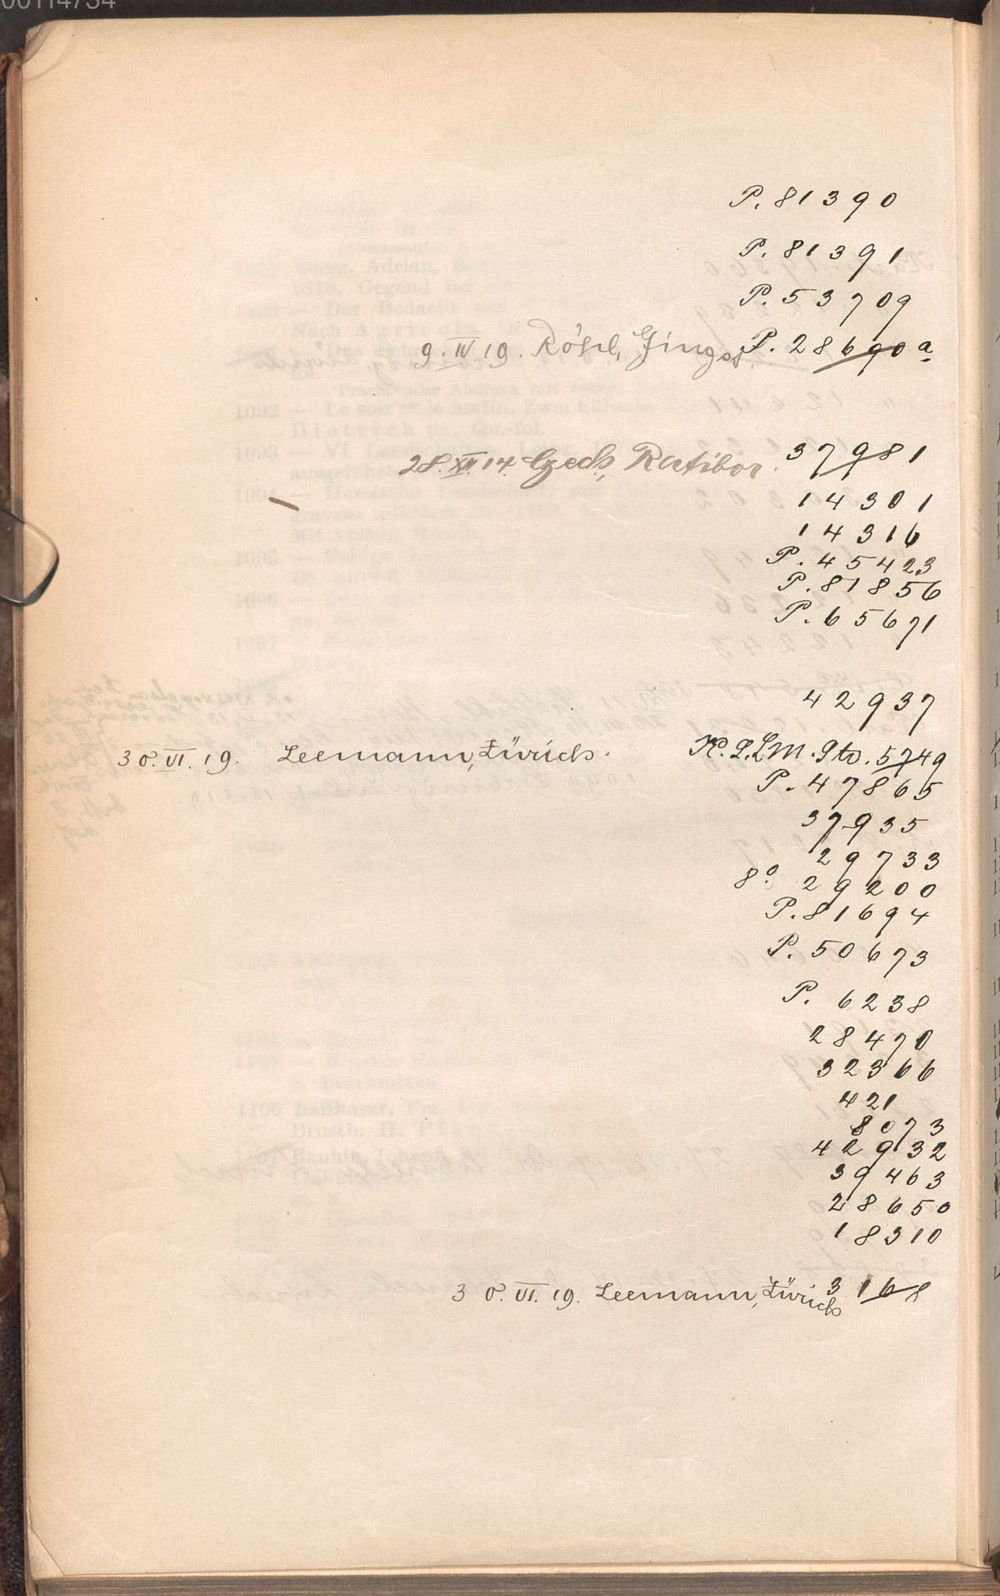 00114734
P. 81390
P. 81391
P. 53709
9. IV 19. Rösel, P. 28690 a
28. XII. 14. Czech, Ratibor. 37981
14301
14316
P. 45423
P. 81856
P. 65671
42937
30. VI. 19. Leemann, Zürich. 5749
P. 47865
37935
29733
8° 29200
P. 81694
P. 50673
P. 6238
28470
32366
421
8073
42932
39463
28650
18310
30. VI. 19. Leemann, Zürich 3168